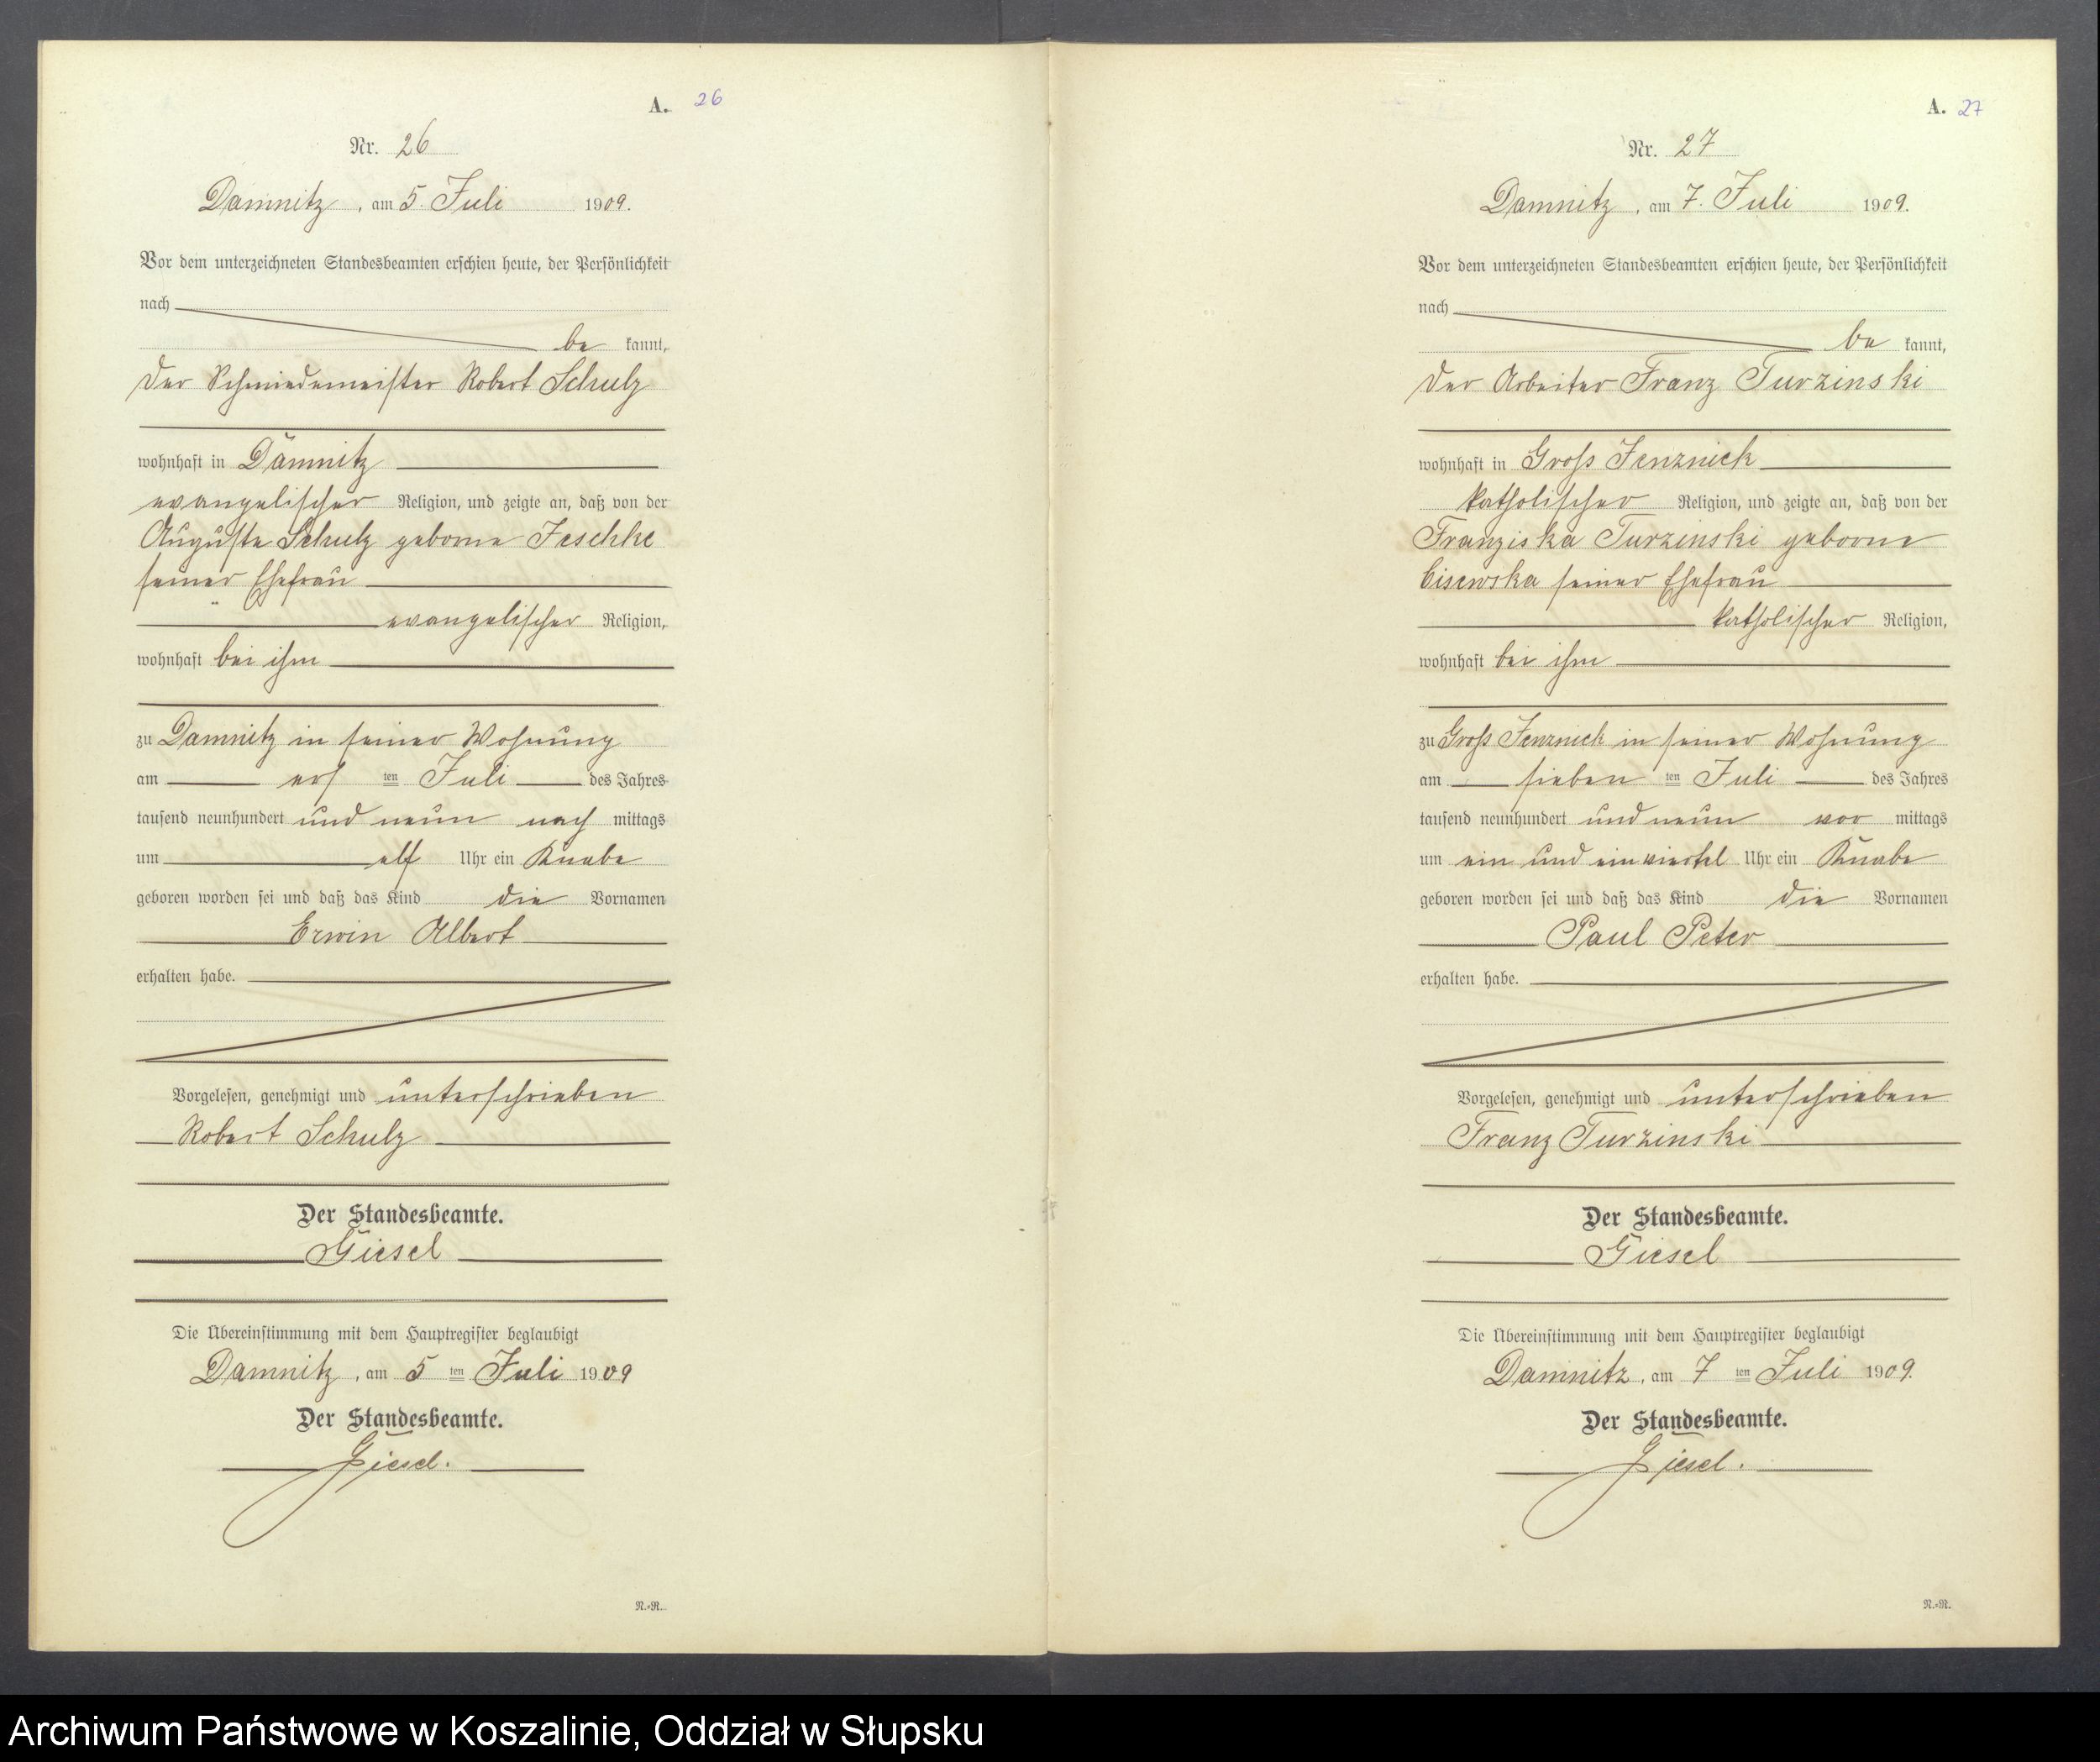 A. 26
Nr. 26
Damnitz, am 5. Juli 1909.
Vor dem unterzeichneten Standesbeamten erschien heute, der Persönlichkeit
nach
be kannt,
der Schmiedemeister Robert Schulz
wohnhaft in Damnitz
evangelischer Religion, und zeigte an, daß von der
Auguste Schulz geborne Jeschke
seiner Ehefrau
evangelischer Religion,
wohnhaft bei ihm
zu Damnitz in seiner Wohnung
am ten Juli des Jahres
tausend neunhundert und neun nach mittags
um elf Uhr ein Knabe
geboren worden sei und daß das Kind die Vornamen
Erwin Albert
erhalten habe.
Vorgelesen, genehmigt und unterschrieben
Robert Schulz
Der Standesbeamte.
Giesel
Die Übereinstimmung mit dem Hauptregister beglaubigt
Damnitz, am 5 ten Juli 1909
Der Standesbeamte.
Giesel.
N.-R.
A. 27
Nr. 27
Damnitz, am 7. Juli 1909.
Vor dem unterzeichneten Standesbeamten erschien heute, der Persönlichkeit
nach
be kannt,
der Arbeiter Franz Turzinski
wohnhaft in Gross Jenznick
katholischer Religion, und zeigte an, daß von der
Franziska Turzinski geborne
Cisewska seiner Ehefrau
katholischer Religion,
wohnhaft bei ihm
zu Gross Jenznick in seiner Wohnung
am sieben ten Juli des Jahres
tausend neunhundert und neun vor mittags
um ein und ein viertel Uhr ein Knabe
geboren worden sei und daß das Kind die Vornamen
Paul Peter
erhalten habe.
Vorgelesen, genehmigt und unterschrieben
Franz Turzinski
Der Standesbeamte.
Giesel
Die Übereinstimmung mit dem Hauptregister beglaubigt
Damnitz, am 7 ten Juli 1909.
Der Standesbeamte.
Giesel.
N.-R.
Archiwum Państwowe w Koszalinie, Oddział w Słupsku